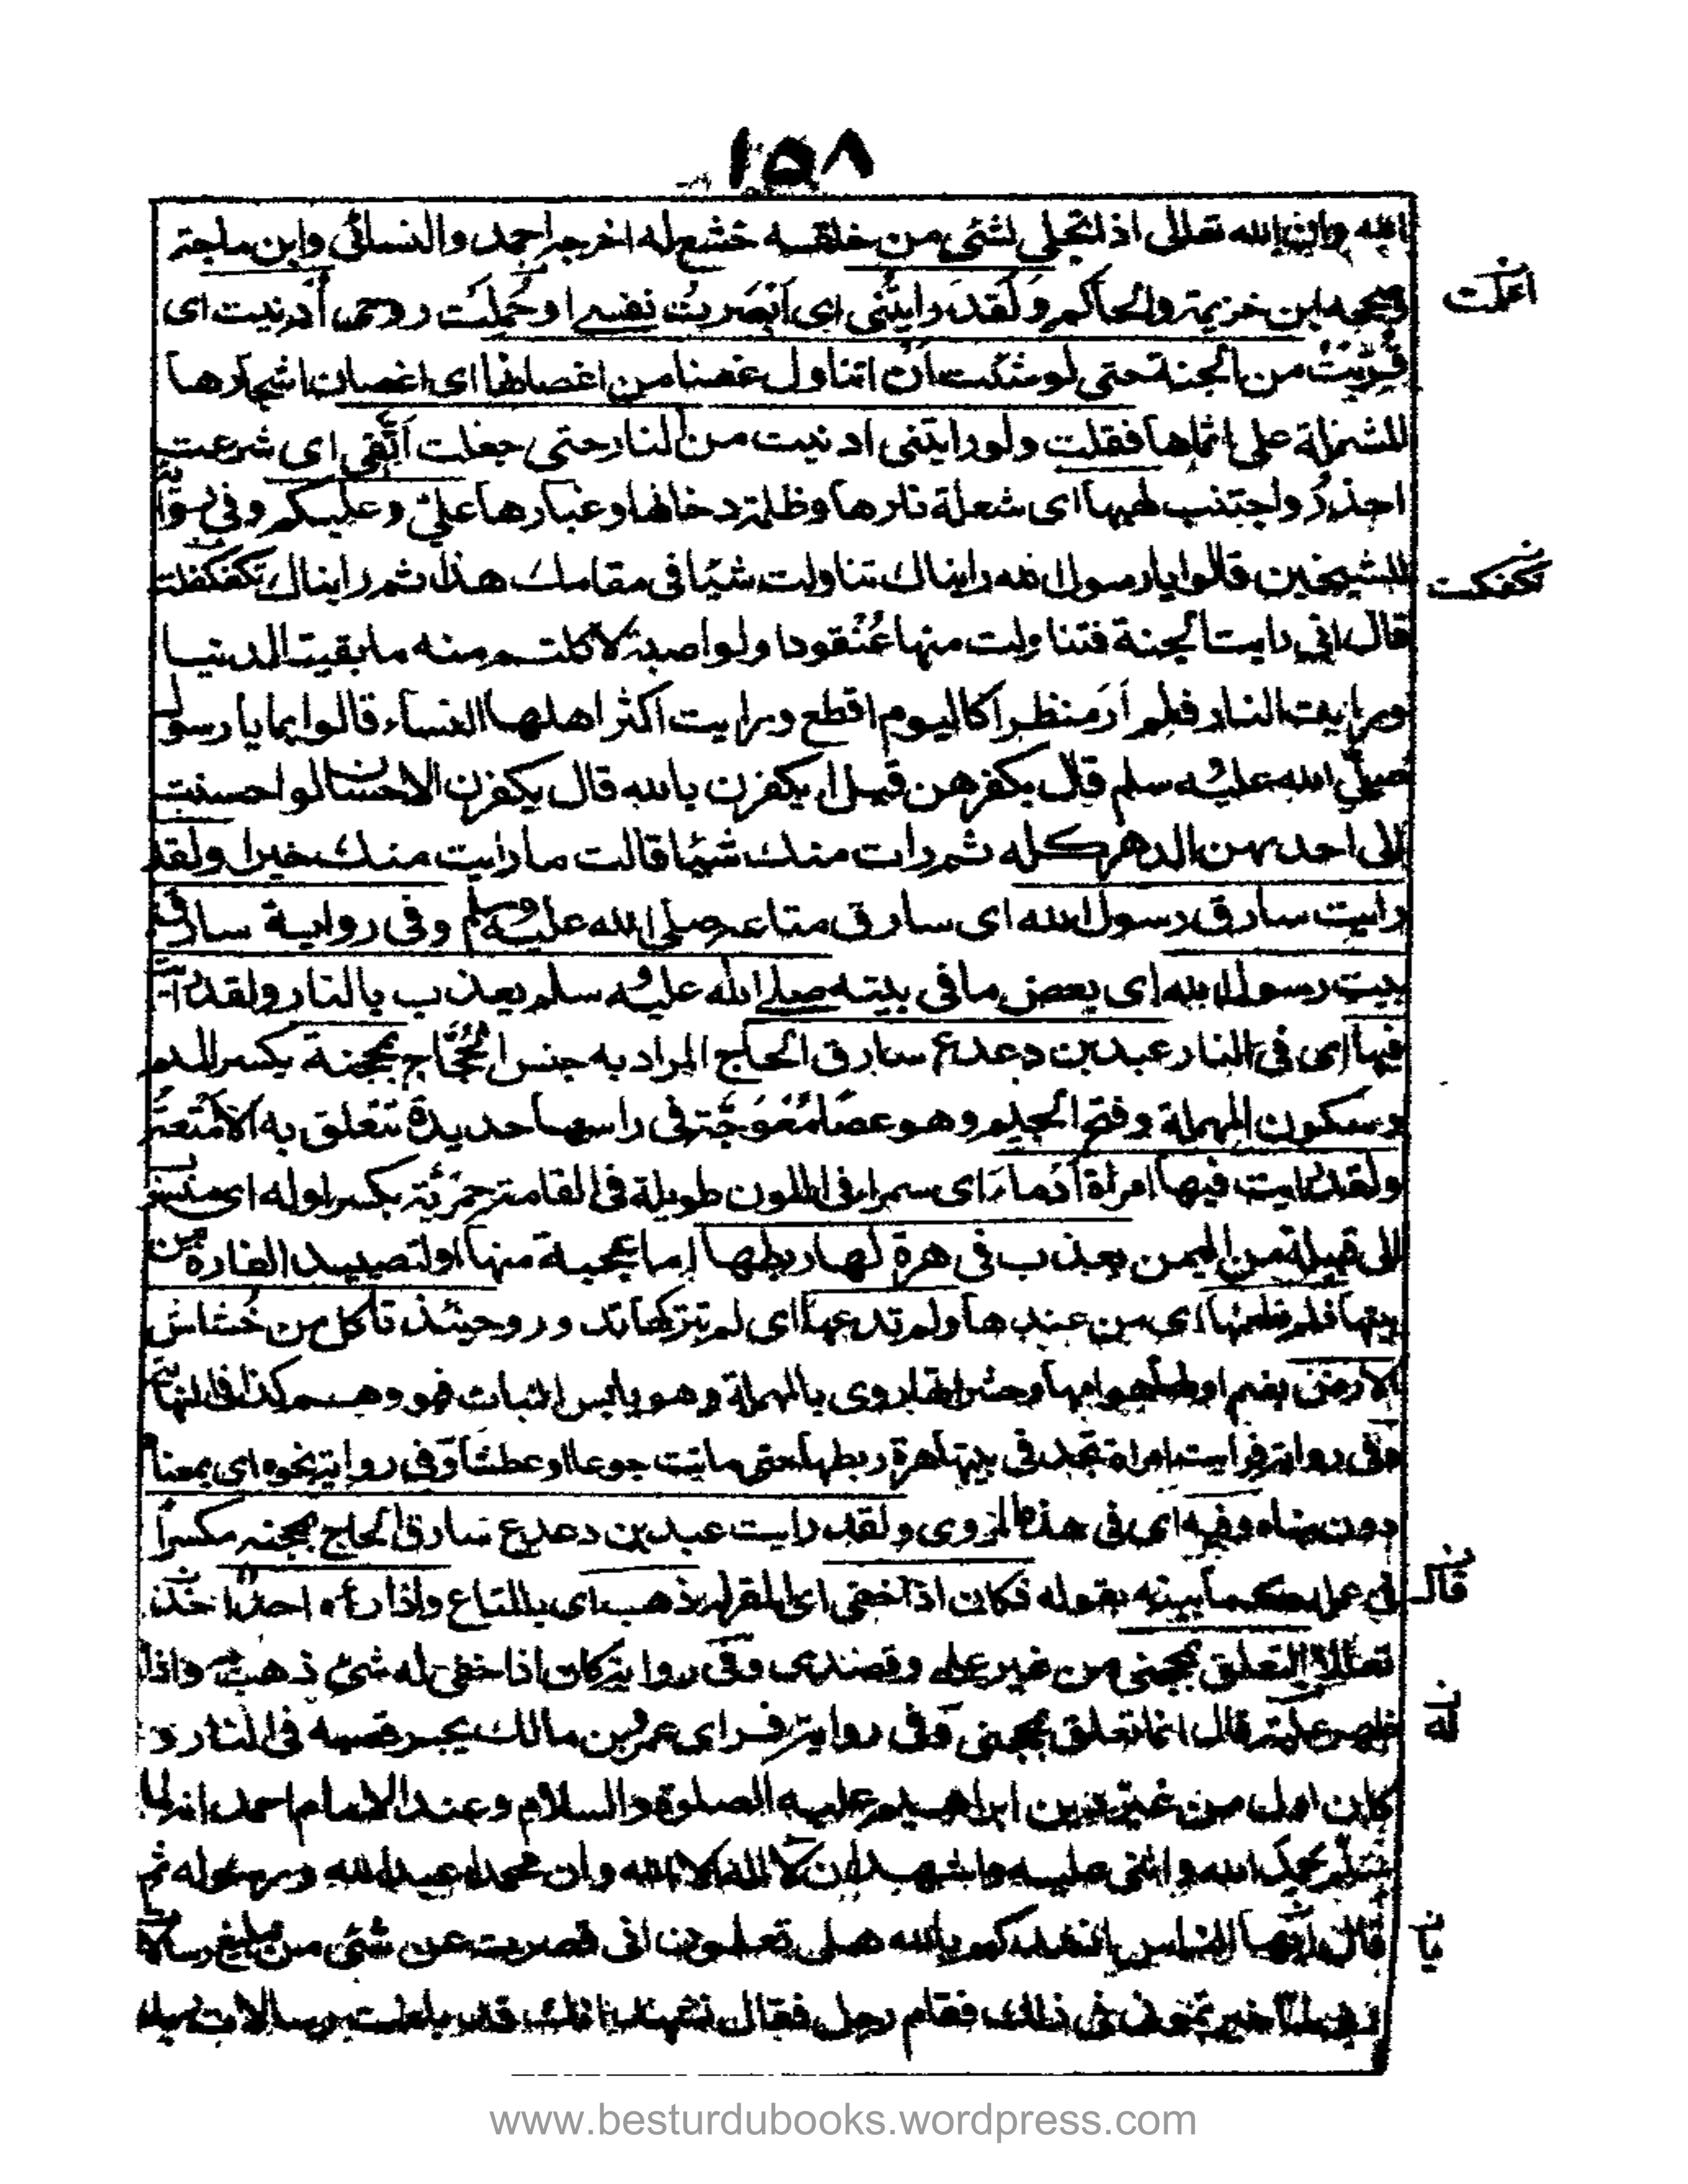 ١٥٨
الله وان الله تعالى اذا تجلى لشئ من خلقه خشع له اخرجه احمد والنسائى وابن ماجة
وصححه ابن خزيمة والحاكم ولقد رايتنى اى ابصرت نفسى او حملت روحى ادنيت اى
اغلت
قربت من الجنة حتى لو شئت ان اتناول غصنا من اغصانها اى اغصان اشجارها
المشتملة على اثمارها فقلت ولو رايتنى ادنيت من النار حتى جعلت اتقى اى شرعت
احذر واجتنب لهيبها اى شعلة نارها وظلمة دخانها وغبارها علىّ وعليكم وفى
للشيخين قالوا يا رسول الله رايناك تناولت شيئا فى مقامك هذا ثم رايناك تكعكعت
تكفكفت
قال انى رايت الجنة فتناولت منها عنقودا ولو اصبته لاكلتم منه ما بقيت الدنيا
ورايت النار فلم ار منظرا كاليوم اقطع ورايت اكثر اهلها النساء قالوا بما يا رسول
صلى الله عليه وسلم قال بكفرهن قيل ايكفرن بالله قال يكفرن الاحسان لو احسنت
الى احديهن الدهر كله ثم رات منك شيئا قالت ما رايت منك خيرا ولقد
رايت سارق رسول الله اى سارق متاعه صلى الله عليه وسلم وفى رواية سارق
بيت رسول الله اى بعض ما فى بيته صلى الله عليه وسلم يعذب بالنار ولقد
فيها اى فى النار عبد بن دعدع سارق الحاج المراد به جنس الحجاج بمحجنة بكسر الميم
وسكون المهملة وفتح الجيم وهو عصا معوجة فى راسها حديدة تتعلق به الامتعة
ولقد رايت فيها امراة ادماء اى سمراء فى اللون طويلة فى القامة حميرية بكسر اوله اى
الى قبيلة من اليمن يعذب فى هرة لها ربطها اما عجبة منها او لتصييد الفارة من
بيتها فلم تطعمها اى من عندها ولم تدعها اى لم تتركها تدور وحينئذ تاكل من خشاش
الارض بضم اوله اى هوامها وحشراتها روى بالمهملة وهو يابس النبات فهو وهم كذا فى النهاية
وفى رواية فرايت امراة تخدش فى بيتها هرة ربطها حتى ماتت جوعا او عطشا وفى رواية نحوه اى بمعناه
دون مبناه وفيه اى فى هذا المروى ولقد رايت عبد بن دعدع سارق الحاج بمحجنه
فى عمله كما بينه بقوله فكان اذا خفى اى المقر له ذهب اى بالمتاع واذا راه احد
قال
تعلق بمحجنى من غير علمى وقصدى وفى رواية كان اذا خفى له شئ ذهب به واذا
ظهر عليه قال انما تعلق بمحجنى وفى رواية فراى عمرو بن مالك يجر قصبه فى النار و
له
كان اول من غير دين ابراهيم عليه الصلوة والسلام وعند الامام احمد انه لما
سلم حمد الله واثنى عليه واشهد ان لا اله الا الله وان محمدا عبد الله ورسوله ثم
قال ايها الناس انشدكم بالله هل تعلمون انى قصرت عن شئ من تبليغ رسالات
يا
ربى لما اخبرتمونى ذلك فقام رجل فقال نشهد انك قد بلغت رسالات ربك
www.besturdubooks.wordpress.com